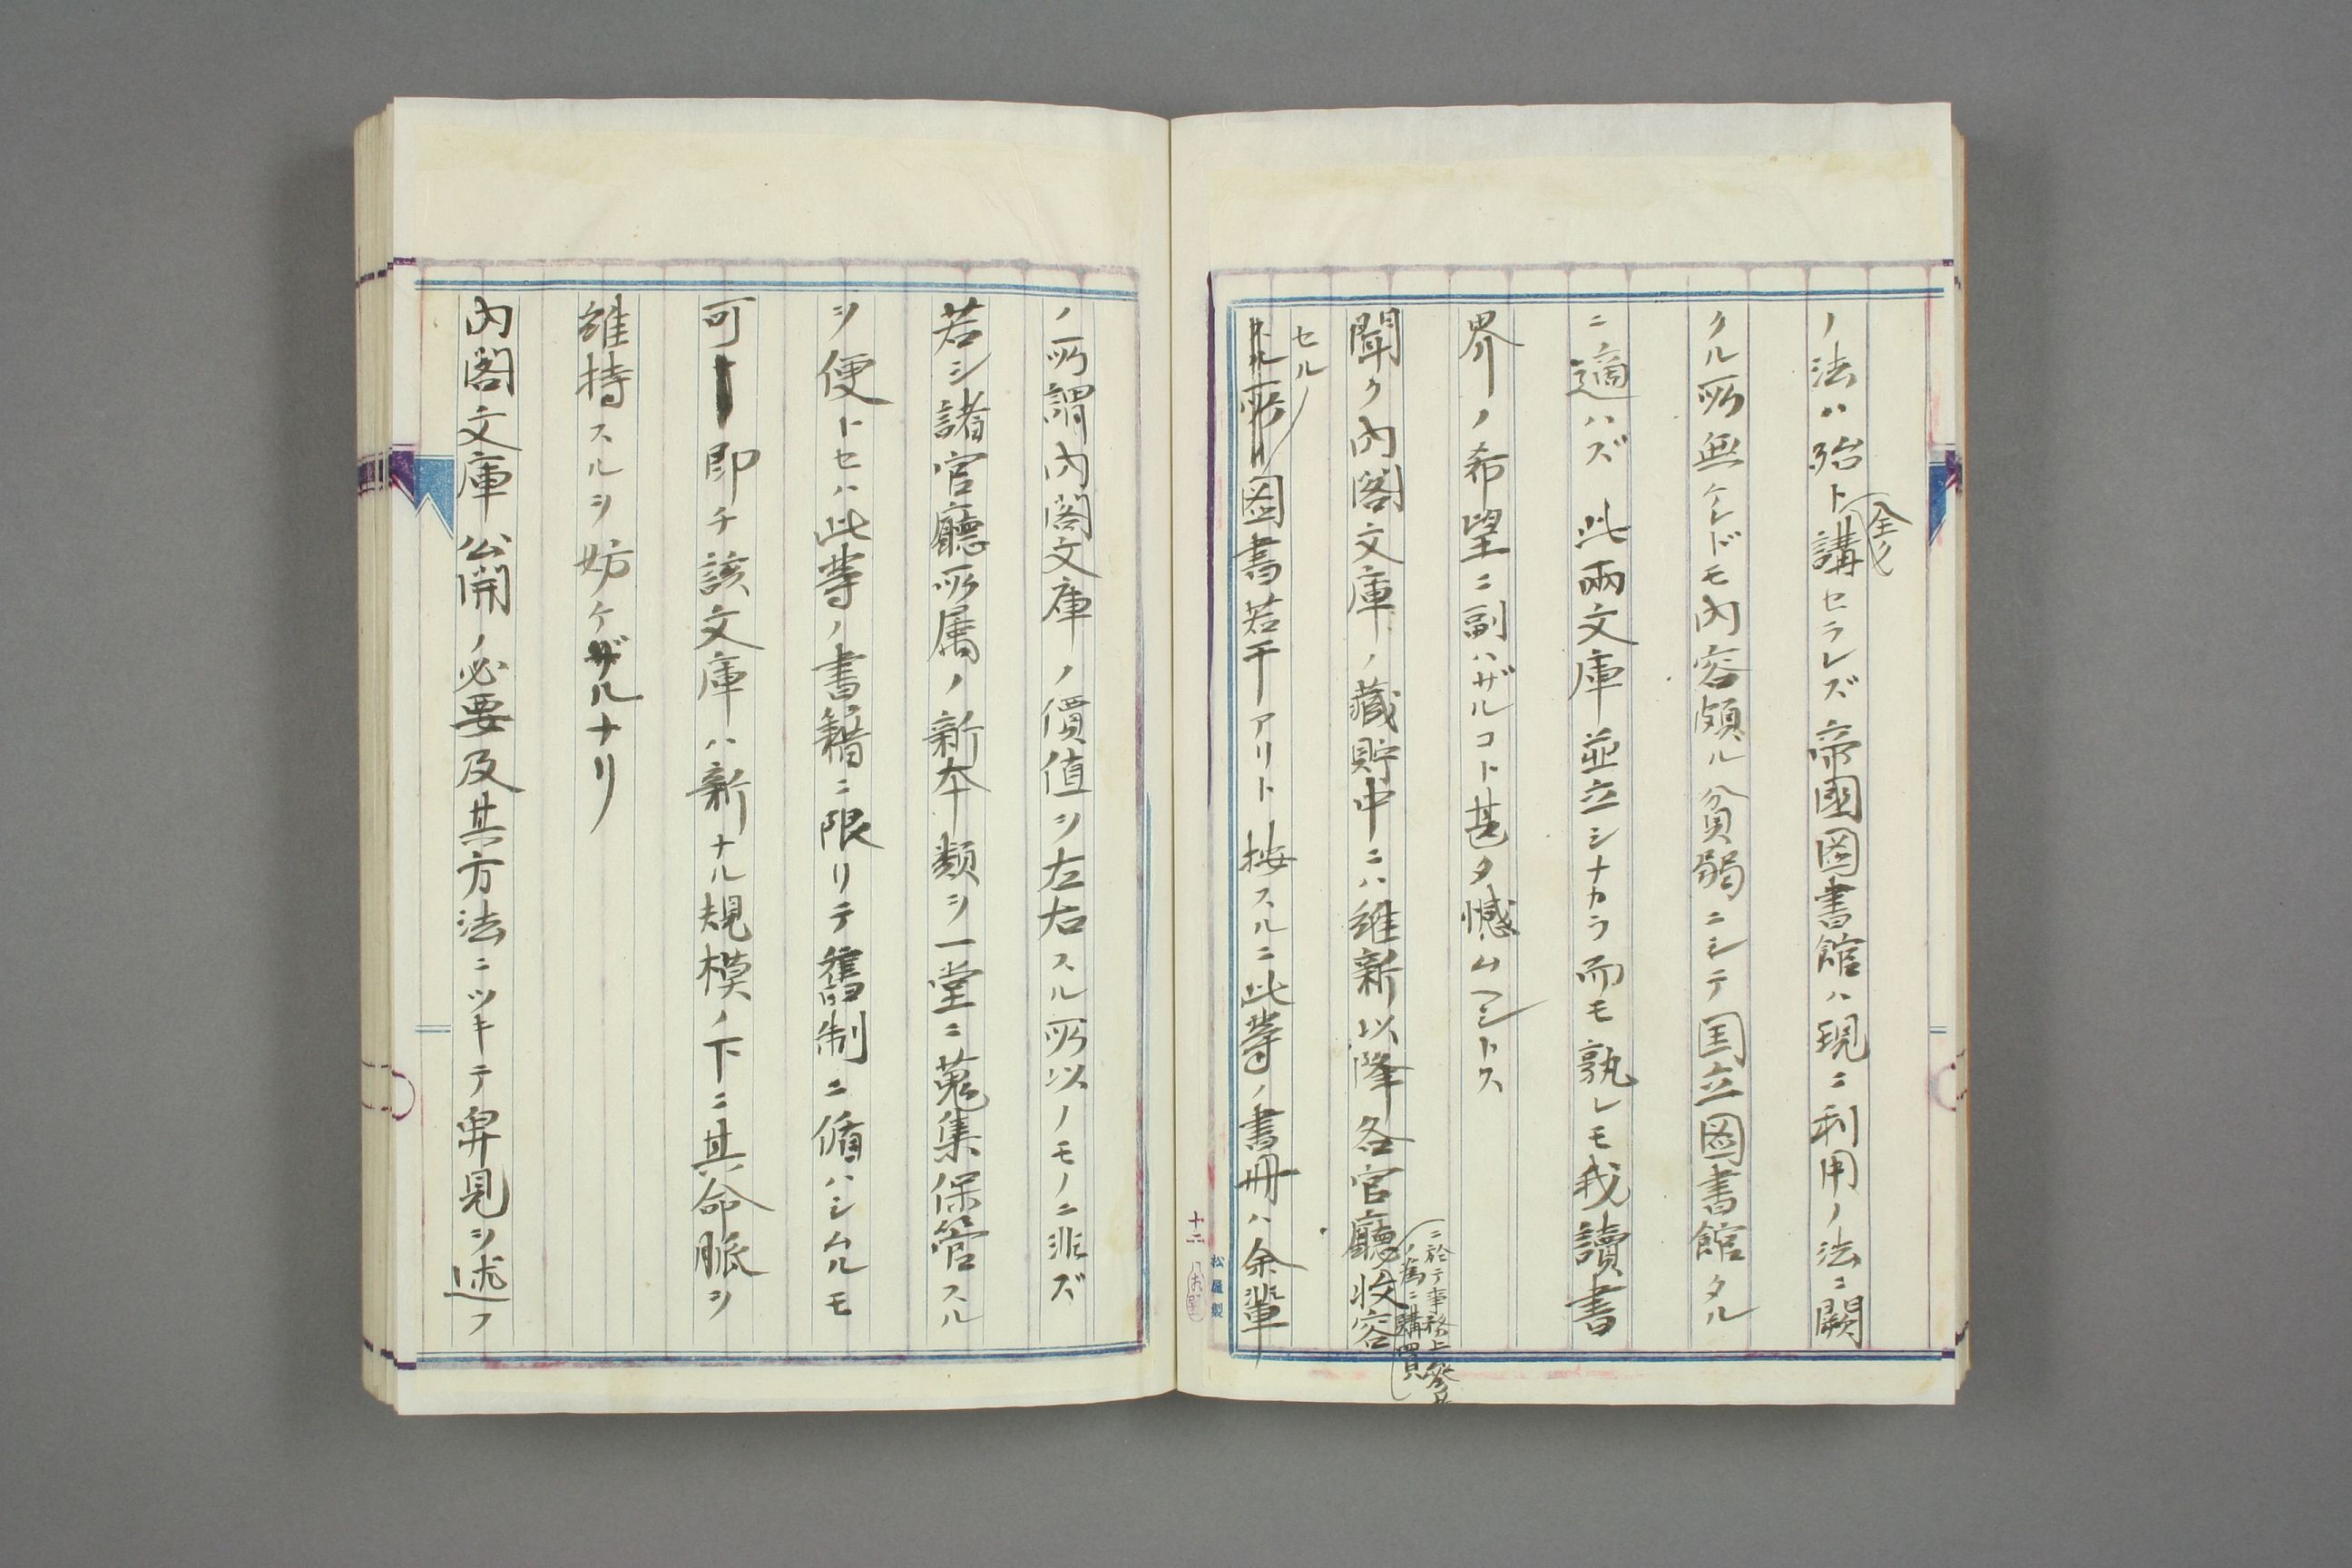 ノ法ハ殆ト講セラレズ帝國圖書館ハ現ニ利用ノ法ニ闕
全ク
クル所無ケレドモ內容頗ル貧弱ニシテ国立圖書館タル
ニ適ハズ此兩文庫並立シナカラ而モ孰レモ我讀書
界ノ希望ニ副ハザルコト甚タ憾ムヘシトス
聞ク內閣文庫ノ藏貯中ニハ維新以降各官廳收容
ニ於テ事務上參考
ノ為ニ購買
セル
所圖書若干アリト按スルニ此等ノ書冊ハ余輩
十二
松屋製
ノ所謂內閣文庫ノ價値ヲ左右スル所以ノモノニ非ズ
若シ諸官廳所属ノ新本類ヲ一堂ニ蒐集保管スル
ヲ便トセハ此等ノ書籍ニ限リテ舊制ニ循ハシムルモ
可即チ該文庫ハ新ナル規模ノ下ニ其命脈ヲ
維持スルヲ妨ケザルナリ
內閣文庫公開ノ必要及其方法ニツキテ鄙見ヲ述フ